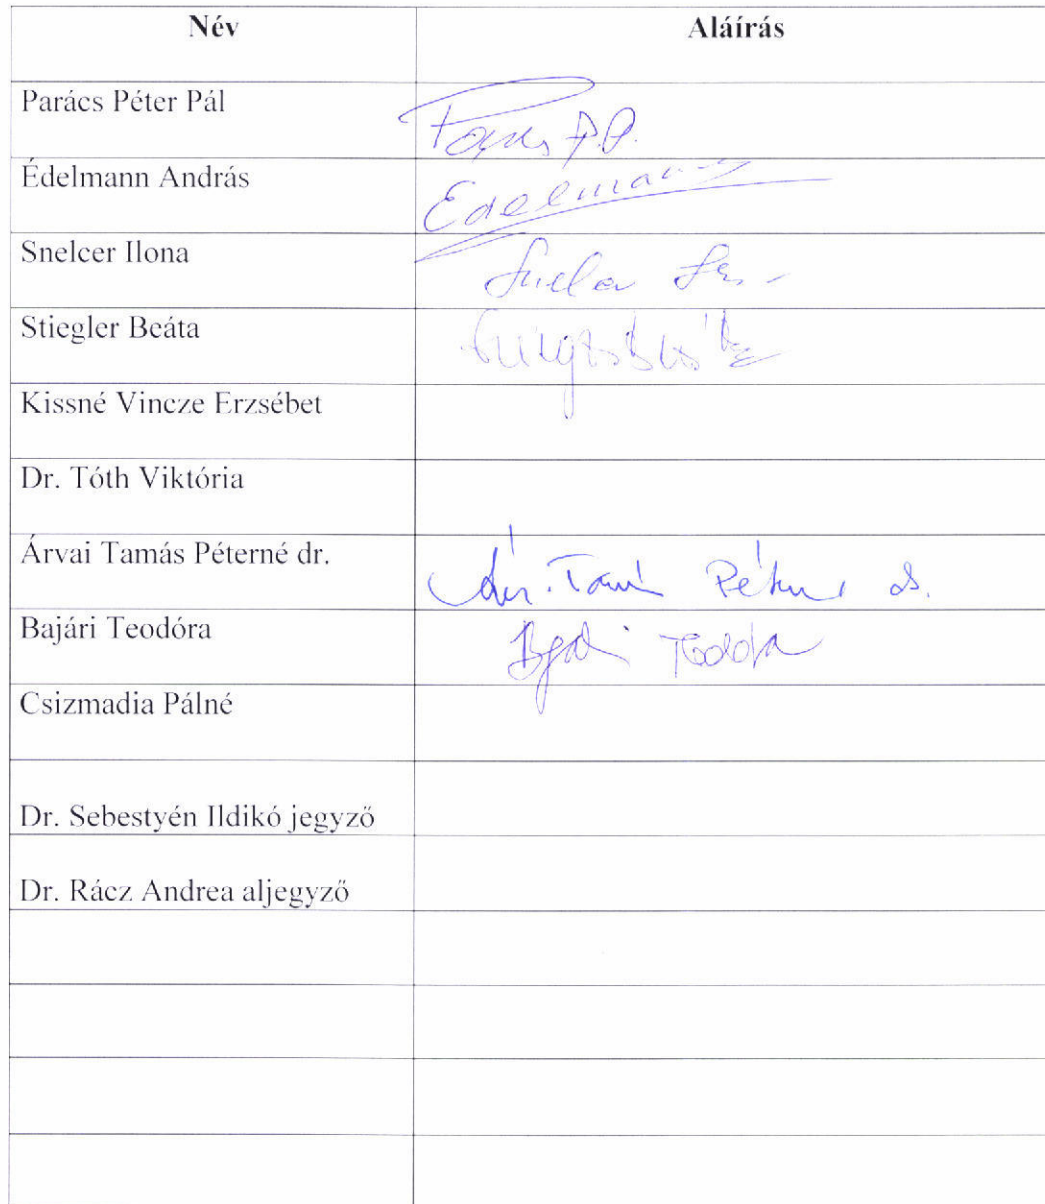 Név Aláírás
Parács Péter Pál
Édelmann András Edelmann
Snelcer Ilona
Stiegler Beáta
Kissné Vincze Erzsébet
Dr. Tóth Viktória
Árvai Tamás Péterné dr.
Bajári Teodóra
Csizmadia Pálné
Dr. Sebestyén Ildikó jegyző
Dr. Rácz Andrea aljegyző